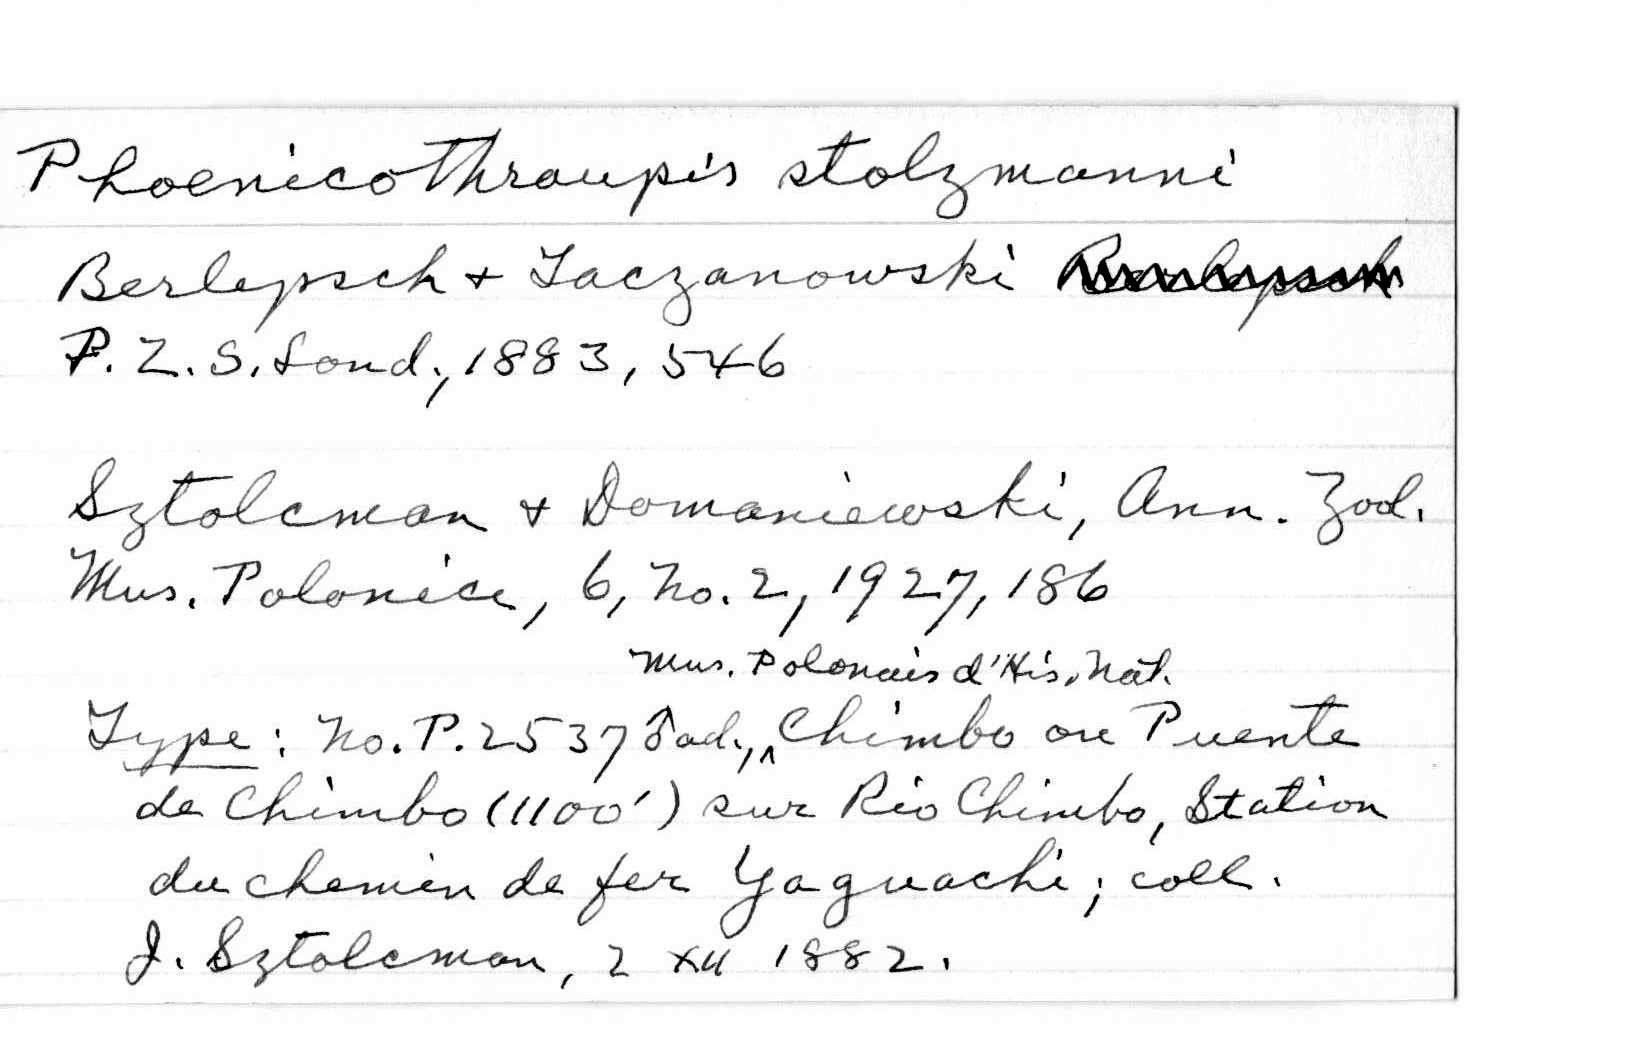 Phoenicothraupis stolzmanni
Berlepsch + Taczanowski Berlepsch
P. Z. S. Lond., 1883, 546
Sztolcman + Domaniewski, Ann. Zool.
Mus. Polonici, 6, No. 2, 1927, 186
Mus. Polonais d'His. Nat.
Type: No. P. 2537 ♂ ad., ^ Chimbo ou Puente
de Chimbo (1100') sur Rio Chimbo, Station
du chemin de fer Yaguachi; coll.
J. Sztolcman, 2 XII 1882.